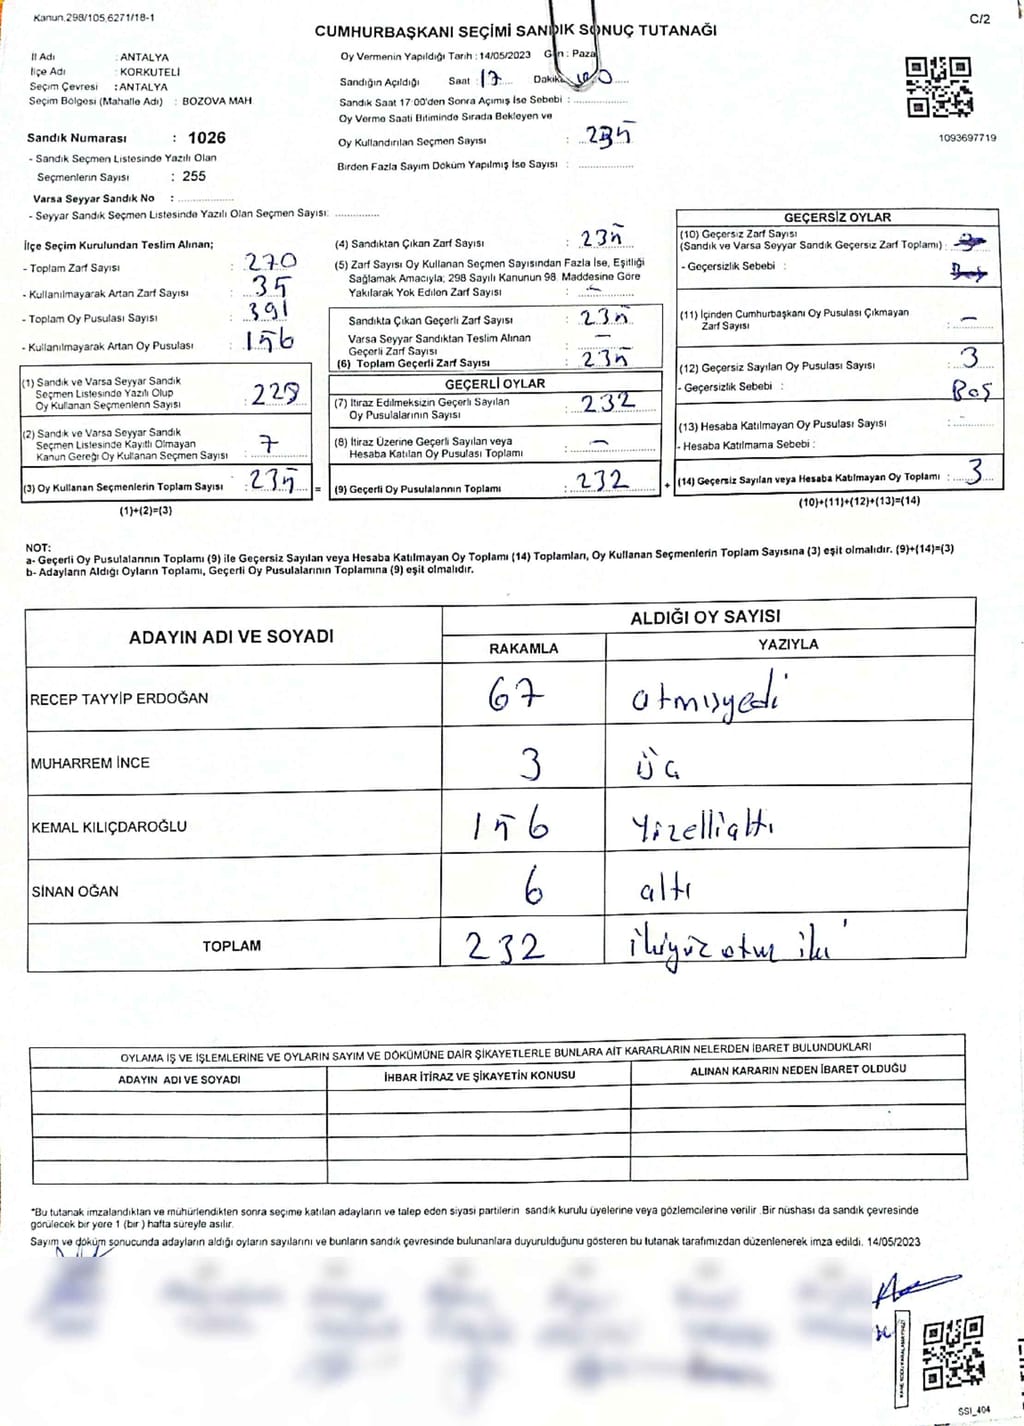 Kanun.298/105,6271/18-1
C/2
CUMHURBAŞKANI SEÇİMİ SANDIK SONUÇ TUTANAĞI
İl Adı : ANTALYA
İlçe Adı : KORKUTELİ
Seçim Çevresi : ANTALYA
Seçim Bölgesi (Mahalle Adı) : BOZOVA MAH.
Oy Vermenin Yapıldığı Tarih : 14/05/2023 Gün : Pazar
Sandığın Açıldığı Saat : 17 Dakika
Sandık Saat 17:00'den Sonra Açımış İse Sebebi :
Oy Verme Saati Bitiminde Sırada Bekleyen ve
Oy Kullandırılan Seçmen Sayısı : 235
Birden Fazla Sayım Döküm Yapılmış İse Sayısı :
1093697719
Sandık Numarası : 1026
- Sandık Seçmen Listesinde Yazılı Olan
Seçmenlerin Sayısı : 255
Varsa Seyyar Sandık No :
- Seyyar Sandık Seçmen Listesinde Yazılı Olan Seçmen Sayısı:
İlçe Seçim Kurulundan Teslim Alınan;
- Toplam Zarf Sayısı : 270
- Kullanılmayarak Artan Zarf Sayısı : 35
- Toplam Oy Pusulası Sayısı : 391
- Kullanılmayarak Artan Oy Pusulası : 156
(1) Sandık ve Varsa Seyyar Sandık
Seçmen Listesinde Yazılı Olup
Oy Kullanan Seçmenlerin Sayısı : 228
(2) Sandık ve Varsa Seyyar Sandık
Seçmen Listesinde Kayıtlı Olmayan
Kanun Gereği Oy Kullanan Seçmen Sayısı : 7
(3) Oy Kullanan Seçmenlerin Toplam Sayısı : 235 =
(1)+(2)=(3)
(4) Sandıktan Çıkan Zarf Sayısı : 235
(5) Zarf Sayısı Oy Kullanan Seçmen Sayısından Fazla İse, Eşitliği
Sağlamak Amacıyla; 298 Sayılı Kanunun 98. Maddesine Göre
Yakılarak Yok Edilen Zarf Sayısı : -
Sandıkta Çıkan Geçerli Zarf Sayısı : 235
Varsa Seyyar Sandıktan Teslim Alınan
Geçerli Zarf Sayısı : -
(6) Toplam Geçerli Zarf Sayısı : 235
GEÇERLİ OYLAR
(7) İtiraz Edilmeksizin Geçerli Sayılan
Oy Pusulalarının Sayısı : 232
(8) İtiraz Üzerine Geçerli Sayılan veya
Hesaba Katılan Oy Pusulası Toplamı : -
(9) Geçerli Oy Pusulalarının Toplamı : 232 +
GEÇERSİZ OYLAR
(10) Geçersiz Zarf Sayısı
(Sandık ve Varsa Seyyar Sandık Geçersiz Zarf Toplamı) :
- Geçersizlik Sebebi :
(11) İçinden Cumhurbaşkanı Oy Pusulası Çıkmayan
Zarf Sayısı : -
(12) Geçersiz Sayılan Oy Pusulası Sayısı : 3
- Geçersizlik Sebebi : Boş
(13) Hesaba Katılmayan Oy Pusulası Sayısı :
- Hesaba Katılmama Sebebi :
(14) Geçersiz Sayılan veya Hesaba Katılmayan Oy Toplamı : 3
(10)+(11)+(12)+(13)=(14)
NOT:
a- Geçerli Oy Pusulalarının Toplamı (9) ile Geçersiz Sayılan veya Hesaba Katılmayan Oy Toplamı (14) Toplamları, Oy Kullanan Seçmenlerin Toplam Sayısına (3) eşit olmalıdır. (9)+(14)=(3)
b- Adayların Aldığı Oyların Toplamı, Geçerli Oy Pusulalarının Toplamına (9) eşit olmalıdır.
ADAYIN ADI VE SOYADI
ALDIĞI OY SAYISI
RAKAMLA YAZIYLA
RECEP TAYYİP ERDOĞAN 67 atmışyedi
MUHARREM İNCE 3 üç
KEMAL KILIÇDAROĞLU 156 Yüzellialtı
SİNAN OĞAN 6 altı
TOPLAM 232 ikiyüz otuz iki
OYLAMA İŞ VE İŞLEMLERİNE VE OYLARIN SAYIM VE DÖKÜMÜNE DAİR ŞİKAYETLERLE BUNLARA AİT KARARLARIN NELERDEN İBARET BULUNDUKLARI
ADAYIN ADI VE SOYADI İHBAR İTİRAZ VE ŞİKAYETİN KONUSU ALINAN KARARIN NEDEN İBARET OLDUĞU
*Bu tutanak imzalandıktan ve mühürlendikten sonra seçime katılan adayların ve talep eden siyasi partilerin sandık kurulu üyelerine veya gözlemcilerine verilir. Bir nüshası da sandık çevresinde
görülecek bir yere 1 (bir) hafta süreyle asılır.
Sayım ve döküm sonucunda adayların aldığı oyların sayılarını ve bunların sandık çevresinde bulunanlara duyurulduğunu gösteren bu tutanak tarafımızdan düzenlenerek imza edildi. 14/05/2023
SSI_404